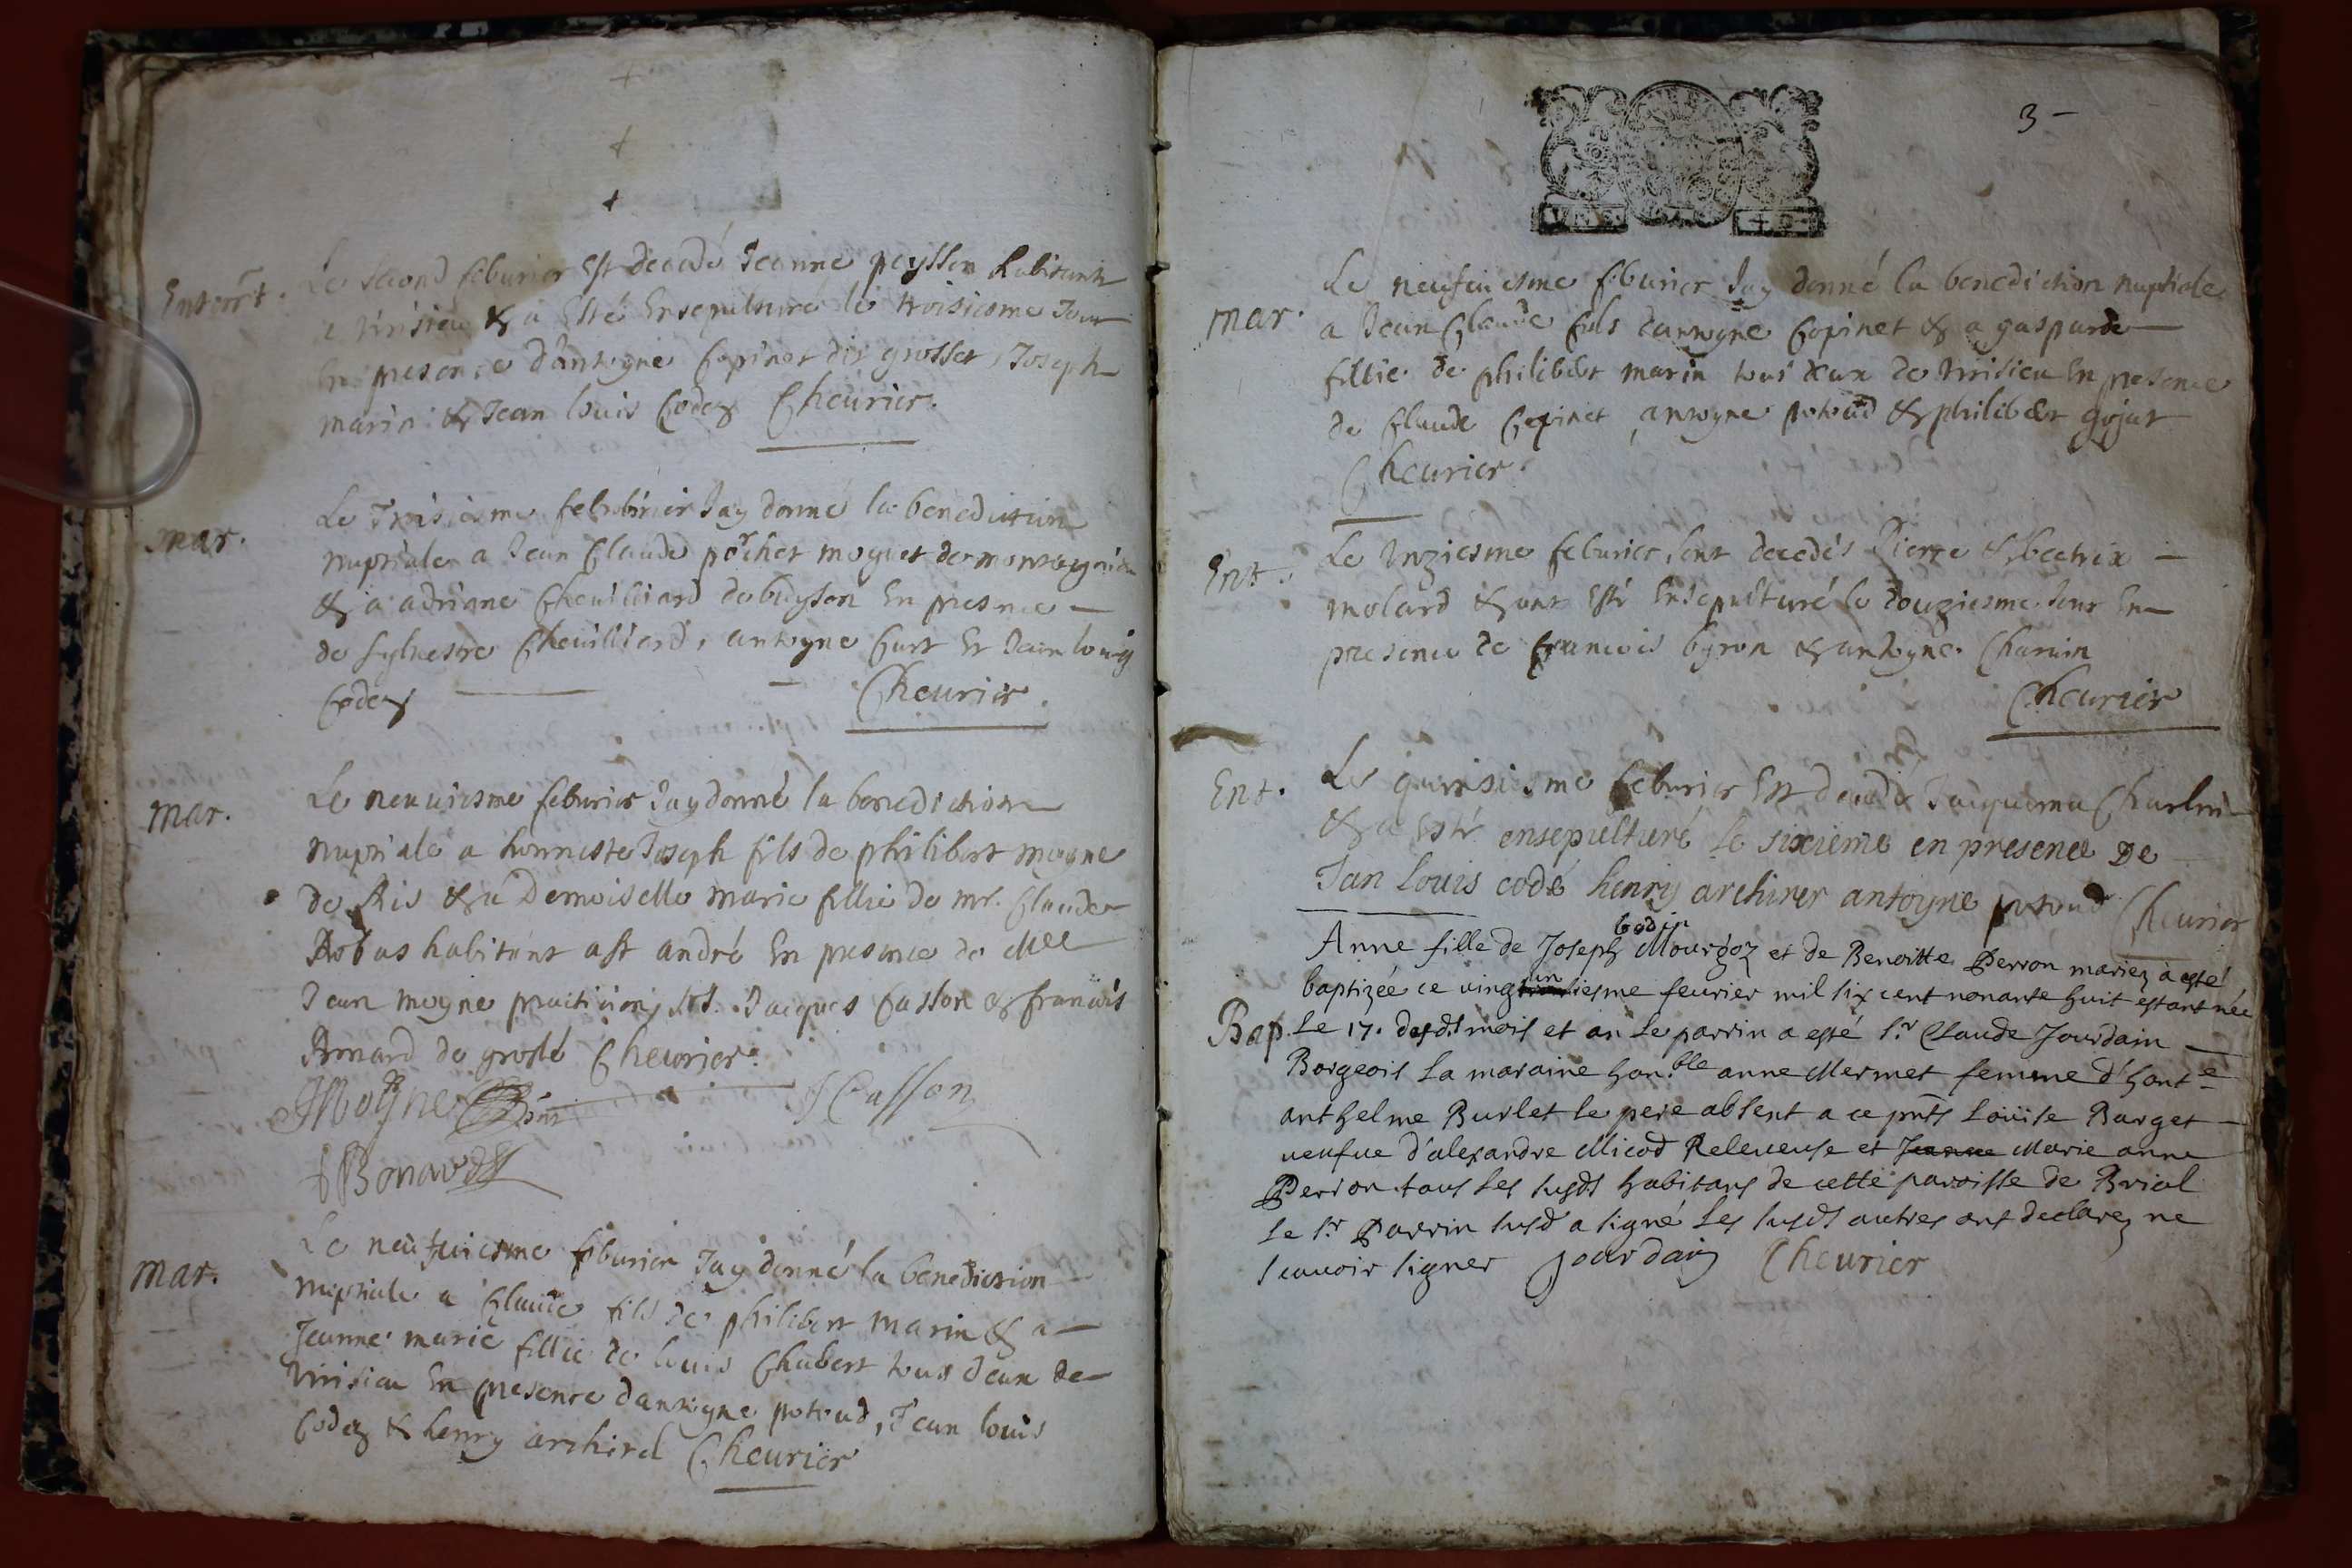 Enterrt.
Le second feburier est decedé Jeanne peysson habitante
a Virisieu & a esté Ensepulturé le troisiesme Jour
En presence d'antoyne Copinet dit grosset, Joseph
marin & Jean louis Codex Cheurier.
mar.
Le Troisiesme feburier Jay donné la benediction
nuptiale a Jean Claude porchet moquet de montagnieu
& a adriane Cheuilliard de buyson En presence
de syluestre Cheuilliard, antoyne Curt Et Jean louis
Codex Cheurier.
mar.
Le neuuiesme feburier Jay donné la benediction
nuptiale a honneste Joseph fils de philibert moyne
de Ris & a Demoiselle marie fillie de mr. Claude
habitant a st andré En presence de Mee
Jean moyne praiticien, Jacques Casson & francois
Bonard de groslé Cheurier.
JMoyne
JCasson
fBonard
mar.
Le neufuiesme feburier Jay donné la benediction
nuptiale a Claude fils de philibert marin & a
Jeanne marie fillie de louis Chabert tous deux de
Virisieu En presence dantoyne potoud, Jean louis
Codex & henry archirel Cheurier
3
mar.
Le neufuiesme feburier Jay donné la benediction nuptiale
a Jean Claude fils dantoyne Copinet & a gasparde
fillie de philibert marin tous deux de Virisieu En presence
de Claude Copinet, antoyne potoud & philibert gojat
Cheurier.
Ent.
Le Unziesme feburier sont decedés Pierre & beatrix
molard & ont esté Ensepulturé le douziesme Jour En
presence de francois byron & antoyne Charuin
Cheurier
Ent.
Le quinsiesme feburier Est decedé Jacquema Charlin
& a esté ensepulturé le sixieme en presence De
Jan Louis codé henry archirer antoyne potoud Cheurier
Godin
Anne fille de Joseph Mourgoz et de Benoitte Perron mariez a esté
un
baptizée ce vingtiesme feurier mil six cent nonante huit estant née
Bap.
Le 17. desdt mois et an Le parrin a esté Sr. Claude Jourdain
Borgeois La maraine hon.ble anne Mermet femme d'hont.e
anthelme Burlet le pere absent a ce pnts Loüise Barget
veufue d'alexandre Micod Releueuse et Jeanne Marie anne
Perron tous Les susdts habitans de cette paroisse de Briol
le Sr Parrin susd a signé Les susdts autres ont declarez ne
scauoir signer Jourdain Cheurier